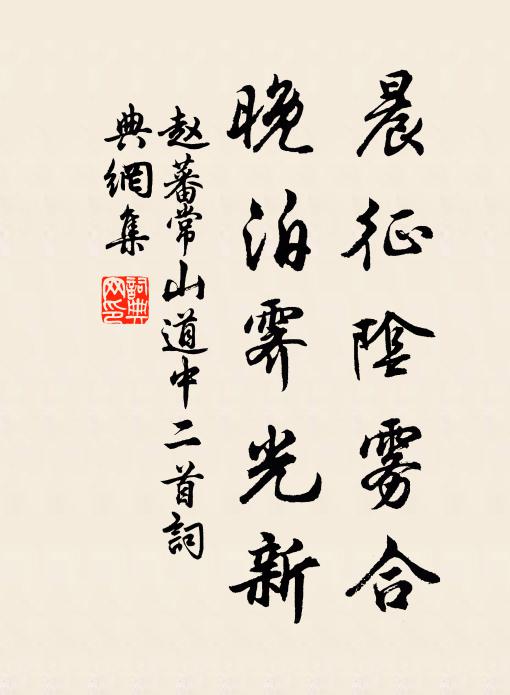 晨征陰雾合
晚泊霁光新
赵蕃常山道中二首詞
典網集
詞典网印